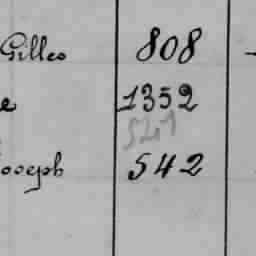 Gilles 808
e 1352
541
Joseph 542